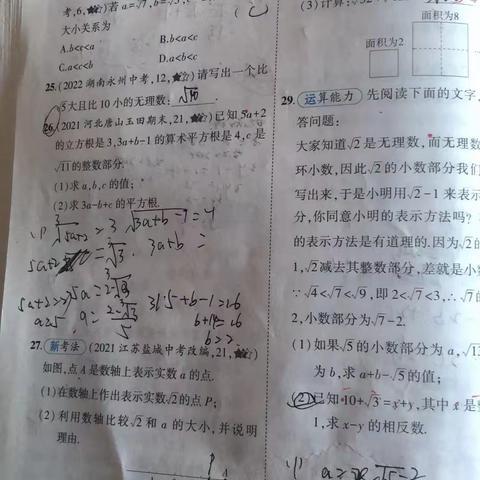 考,6,
若 a=√7, b=√5,
大小关系为
(C)
A.b<c<a
B.b<a<c
C.a<c<b
D.a<b<c
25.(2022 湖南永州中考,12,
)请写出一个比
5大且比 10 小的无理数:
26.(2021 河北唐山玉田期末,21,
)已知 5a+2
的立方根是 3,3a+b-1 的算术平方根是 4,c 是
√11的整数部分.
(1)求 a,b,c 的值;
(2)求 3a-b+c 的平方根.
(1) ∛5a+2=3 √3a+b-1=4
3a+b=
5a+2
a=5
3×5+b-1=16
b+14=16
b=2
27.(新考法)(2021 江苏盐城中考改编,21,
)
如图,点 A 是数轴上表示实数 a 的点.
(1)在数轴上作出表示实数√2的点 P;
(2)利用数轴比较√2和 a 的大小,并说明
理由.
(3)计算:
面积为8
面积为2
29.(运算能力)先阅读下面的文字,
答问题:
大家知道√2是无理数,而无理数
环小数,因此√2的小数部分我们
写出来,于是小明用√2-1来表示
分,你同意小明的表示方法吗?
的表示方法是有道理的.因为√2的
1,√2减去其整数部分,差就是小数
∵√4<√7<√9,即2<√7<3,∴√7的
2,小数部分为√7-2.
(1)如果√5的小数部分为 a,√13
为 b,求 a+b-√5的值;
(2)已知 10+√3=x+y,其中 x 是整
1,求 x-y 的相反数.
(1)
√5-2